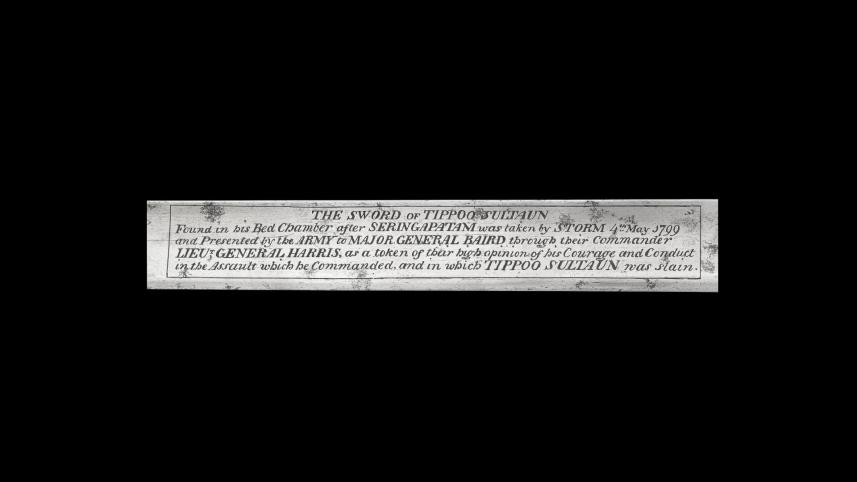 THE SWORD OF TIPPOO SULTAUN
Found in his Bed Chamber after SERINGAPATAM was taken by STORM 4th May 1799
and Presented by the ARMY to MAJOR GENERAL BAIRD through their Commander
LIEUT GENERAL HARRIS, as a token of their high opinion of his Courage and Conduct
in the Assault which he Commanded, and in which TIPPOO SULTAUN was slain.